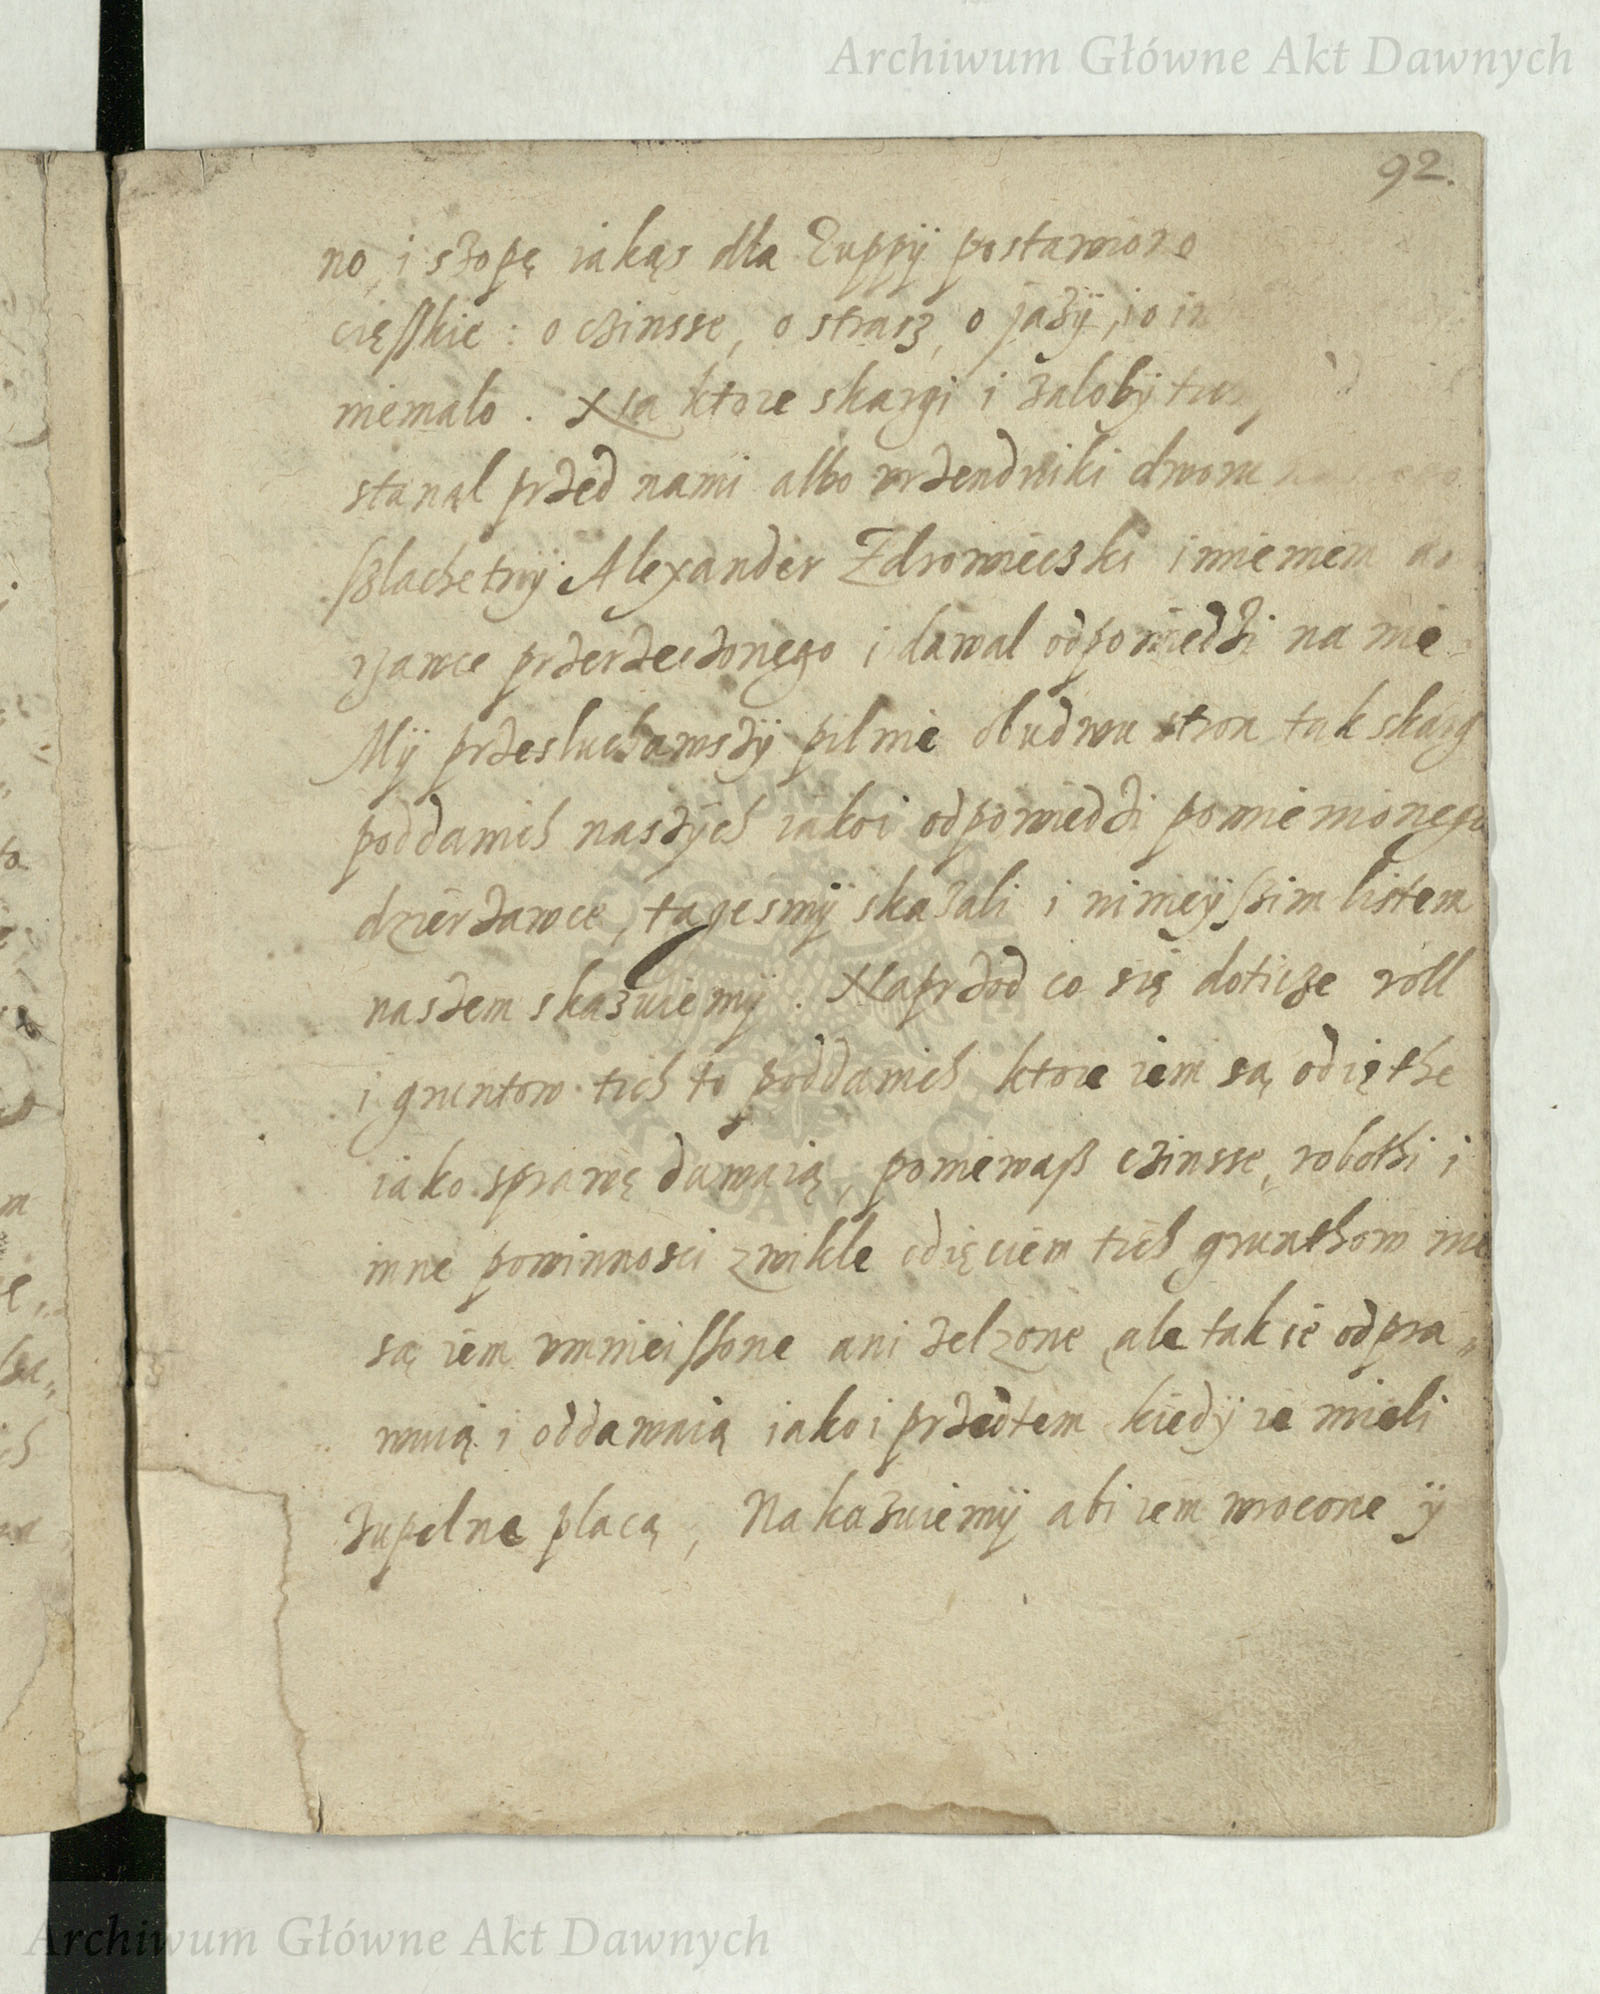 Archiwum Główne Akt Dawnych
92.
no, i szopę iakąs dla Zuppÿ postawiono
cięſkie : o czinsse, o strasz, o jazÿ, i o
niemalo. Na ktore skargi i zalobÿ
stanąl przed nami albo vrzendniki dworu
ſzlachetnÿ Alexander Zdrowieczski imieniem
rzawce przerzeczonego i dawal odpowiedzi na nie.
Mÿ przesluchawszÿ pilnie obudwu stron tak skarg
poddanich naszÿch iakoi odpowiedzi pomienionego
dzierzawce, tagesmÿ skazali i ninieyſzim listem
naszem skazuiemÿ. Naprzod co się doticze roll
i gruntow tich to poddanich ktore iem są odięthe
iako sprawę dawaią, poniewaß czinsse, robothi i
inne powinnosci zwikle odięciem tich grunthow nie
są iem vmnieiſſone ani zelzone ale takie odpra„
wuią i oddawaią iakoi przedtem kiedÿ ie mieli
zupelne placą, Nakazuiemÿ abi iem wrocone ÿ
ARCHIWUM GŁÓWNE AKT DAWNYCH
Archiwum Główne Akt Dawnych